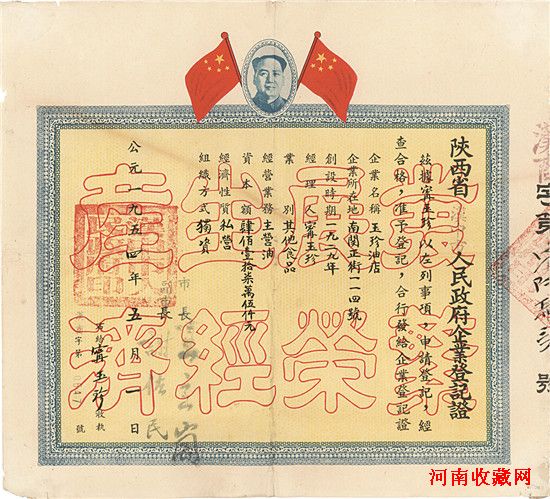 陝西省　人民政府企業登記證
茲據甯玉珍以左列事項，申請登記，經
查合格，准予登記，合行發給企業登記證
企業名稱 玉珍油店
企業所在地 南関正街一一四號
創設時期 一九二九年
經理人 甯玉珍
業別 其他食品
經營業務 主營油
資本額 肆佰壹拾柒萬伍仟元
經濟性質 私營
組織方式 獨資
市長
副市長
公元一九五四年五月一日
甯玉珍 收執
字第　號
發展生產
繁榮經濟
河南收藏网